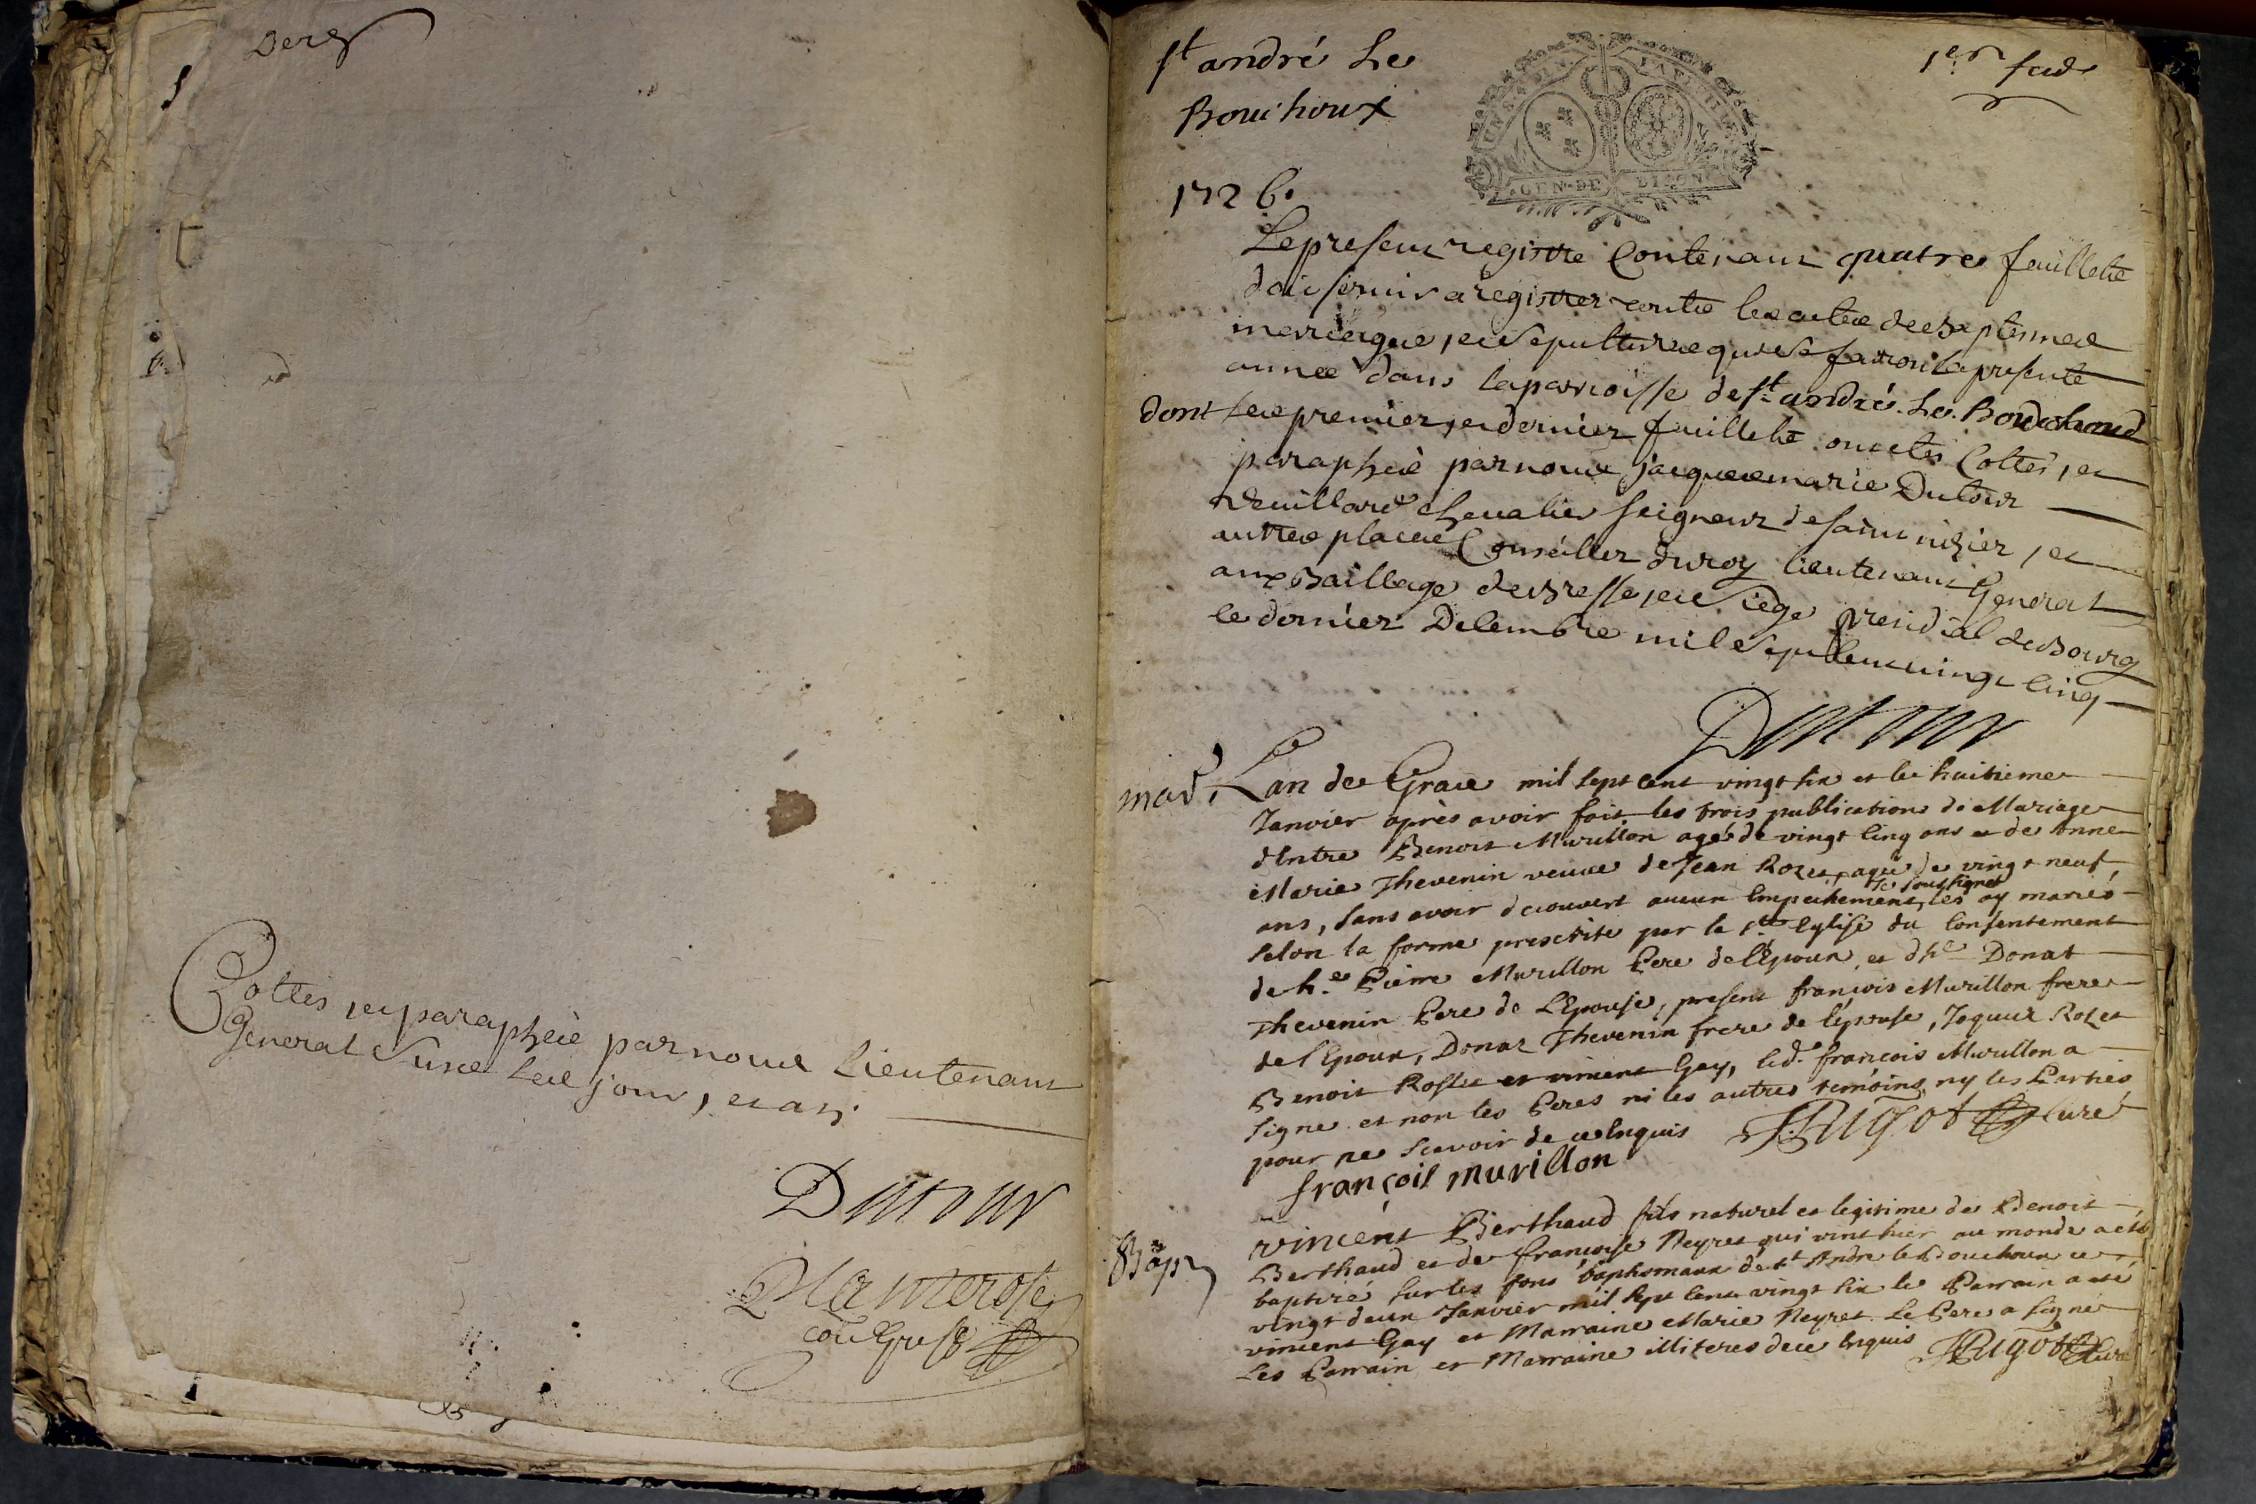 Derr
Cottés et paraphéé par nous Lieutenant
General susd les jour, et an.
Dutour
st andré Le
Bouchoux
1er
GEN. DE DIJON
1726.
Le present registre Contenant quatre feuillets
doit servir a registrer les actes de baptemes
mariages, et sepultures qui se feront la presente
année dans la parroisse de st andré. Le. Bouchoud
dont les premier, et dernier feuillets ont etés Cottés, et
paraphéé par nous jacques marie Dutour
Vuillard chevalier seigneur de saint nizier, et
autres places Conseiller du roy lieutenant General
aux Baillage de Bresse, et siege presidial de Bourg
le dernier Decembre mil sept cent vingt cinq
Dutour
mar.
Lan de Grace mil sept cent vingt six et le huitieme
Janvier aprés avoir fait les trois publications de Mariage
dEntre Benoit Murillon agé de vingt cinq ans et de Anne
Marie Thevenin veuve de Jean Rozet, agée de vingt neuf
ans, sans avoir decouvert aucun Empechement, je soussigné les ay mariés
selon la forme prescrite par la ste Eglise du consentement
de h.e Pierre Murillon Pere de l'Epoux, et dh.e Donat
Thevenin Pere de L'Epouse, present francois Murillon frere
de l'Epoux, Donat Thevenin frere de l'epouse, Jaques Rozet
Benoit et vincent Gay, led. francois Murillon a
signe et non les Peres ni les autres temoins, ny les Parties
pour ne scavoir de ce Enquis
françois murillon
Rigot Curé
Bap
vincent Berthaud fils naturel et legitime de Benoit
Berthaud et de Françoise Neyret qui vint hier au monde a eté
baptisé sur les fons baptismaux de st André le Bouchoux ce
vingt deux Janvier mil sept cent vingt six le Parrain a eté
vincent Gay et Marraine Marie Neyret. Le Pere a signé
Les Parrain et Marraine illiteres de ce Enquis
Rigot Curé